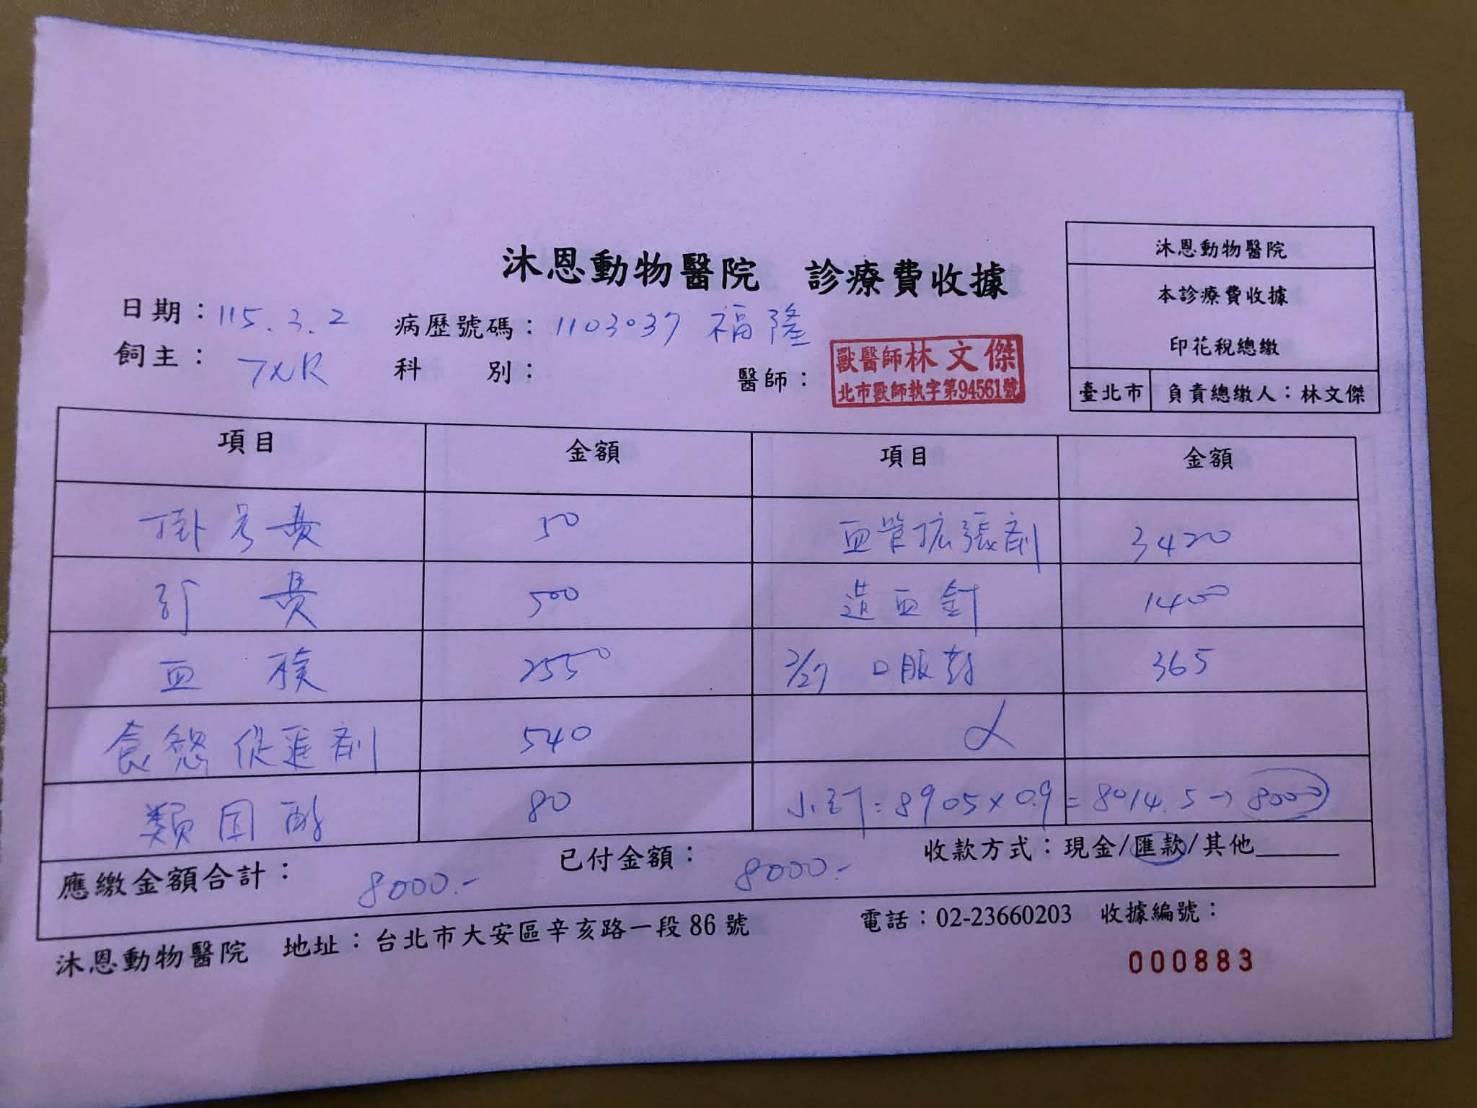 沐恩動物醫院 診療費收據
沐恩動物醫院
本診療費收據
印花稅總繳
臺北市 負責總繳人：林文傑
日期：115.3.2 病歷號碼：1103037 福隆
飼主：TNR 科 別： 醫師：
獸醫師林文傑
北市獸師執字第94561號
項目 金額 項目 金額
掛号費 50 血管扩張劑 3420
診 費 500 造血針 1400
血 檢 2550 2/27 口服葯 365
食慾促進劑 540
類固醇 80 小計=8905×0.9=8014.5→8000
應繳金額合計：8000.- 已付金額：8000.- 收款方式：現金/匯款/其他
沐恩動物醫院 地址：台北市大安區辛亥路一段86號 電話：02-23660203 收據編號：
000883